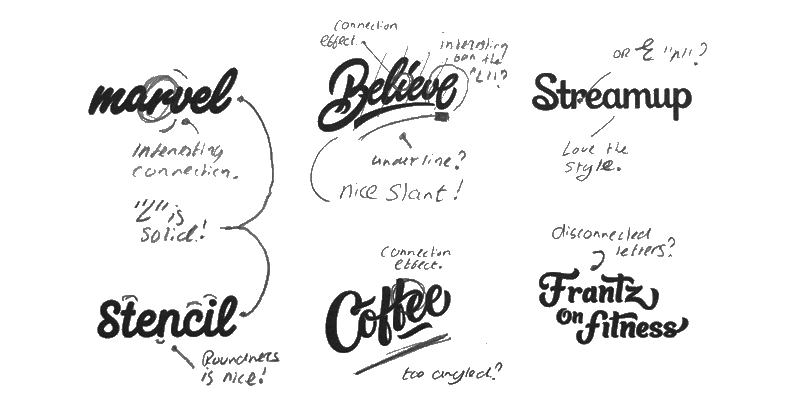 connection
effect.
interesting
"L"?
OR & "n"?
marvel
Believe
Streamup
Interesting
connection.
underline?
Love the
style.
nice slant!
"L" is
solid!
disconnected
letters?
connection
effect.
Stencil
Coffee
Frantz
On
fitness
Roundness
is nice!
too angled?